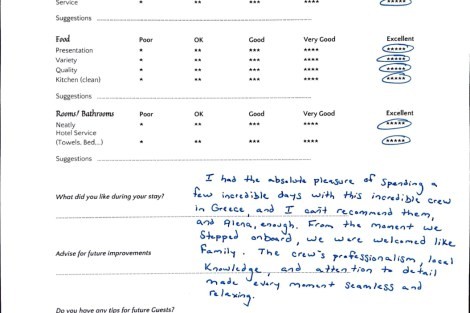 Service * ** *** **** *****
Suggestions
Food Poor OK Good Very Good Excellent
Presentation * ** *** **** *****
Variety * ** *** **** *****
Quality * ** *** **** *****
Kitchen (clean) * ** *** **** *****
Suggestions
Rooms/ Bathrooms Poor OK Good Very Good Excellent
Neatly * ** *** **** *****
Hotel Service
(Towels. Bed...) * ** *** **** *****
Suggestions
What did you like during your stay?
I had the absolute pleasure of spending a
few incredible days with this incredible crew
in Greece, and I can't recommend them,
and Alena, enough. From the moment we
stepped onboard, we were welcomed like
family. The crew's professionalism, local
knowledge, and attention to detail
made every moment seamless and
relaxing.
Advise for future improvements
Do you have any tips for future Guests?